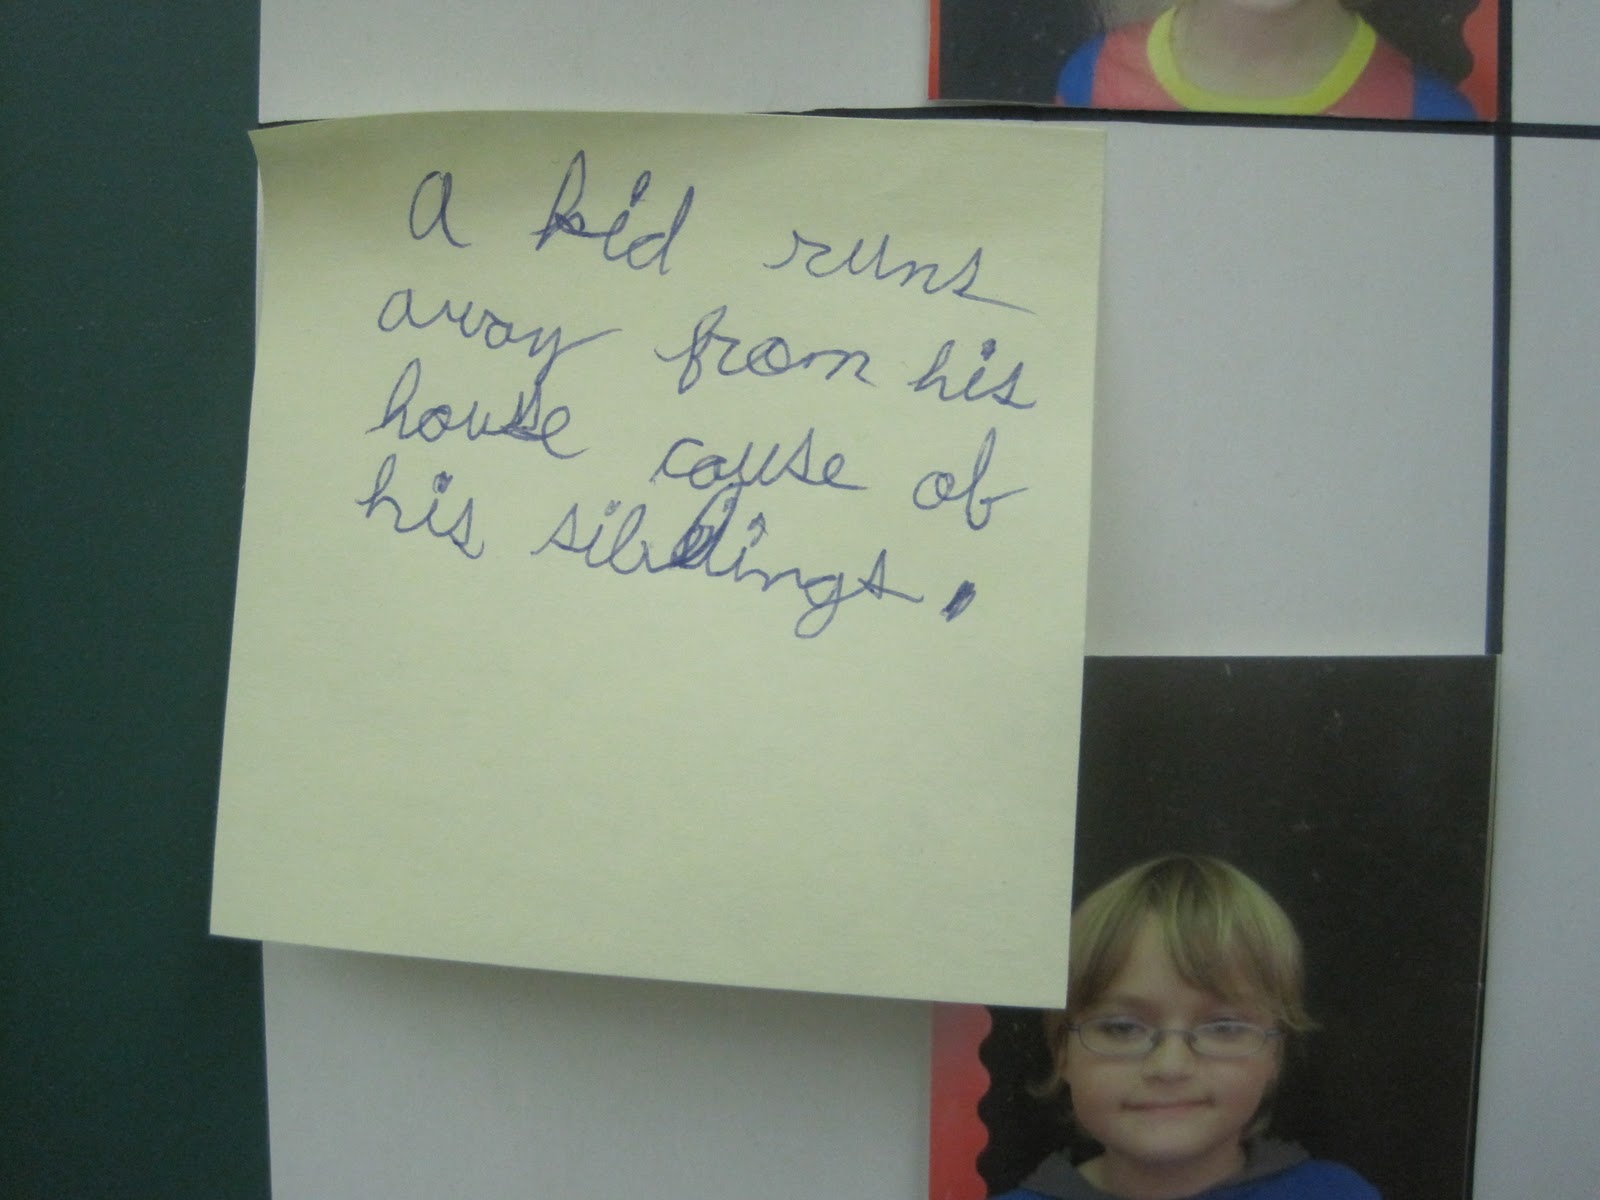 a kid runs
away from his
house cause of
his siblings.